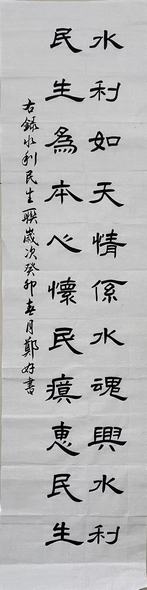 水利如天情係水魂興水利
民生為本心懷民瘼惠民生
右錄水利民生一聯歲次癸卯春月鄭好書